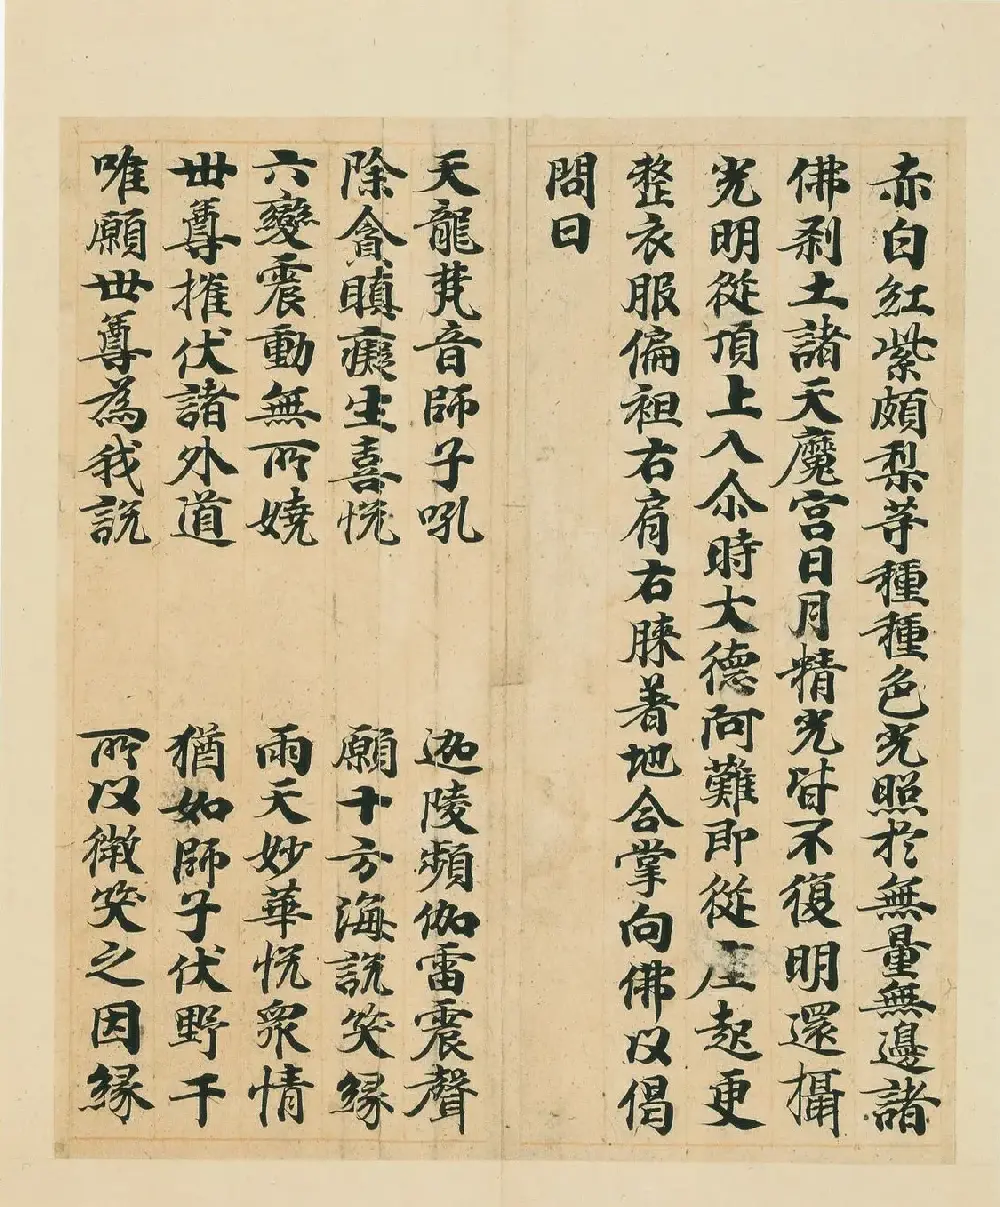 赤白紅紫頗梨等種種色光照於無量無邊諸
佛剎土諸天魔宮日月精光皆不復明還攝
光明從頂上入尒時大德阿難即從座起更
整衣服偏袒右肩右膝著地合掌向佛以偈
問曰
天龍梵音師子吼 迦陵頻伽雷震聲
除貪瞋癡生喜悅 願十方海說笑緣
六變震動無所嬈 雨天妙華悅衆情
世尊摧伏諸外道 猶如師子伏野干
唯願世尊為我說 所以微笑之因緣